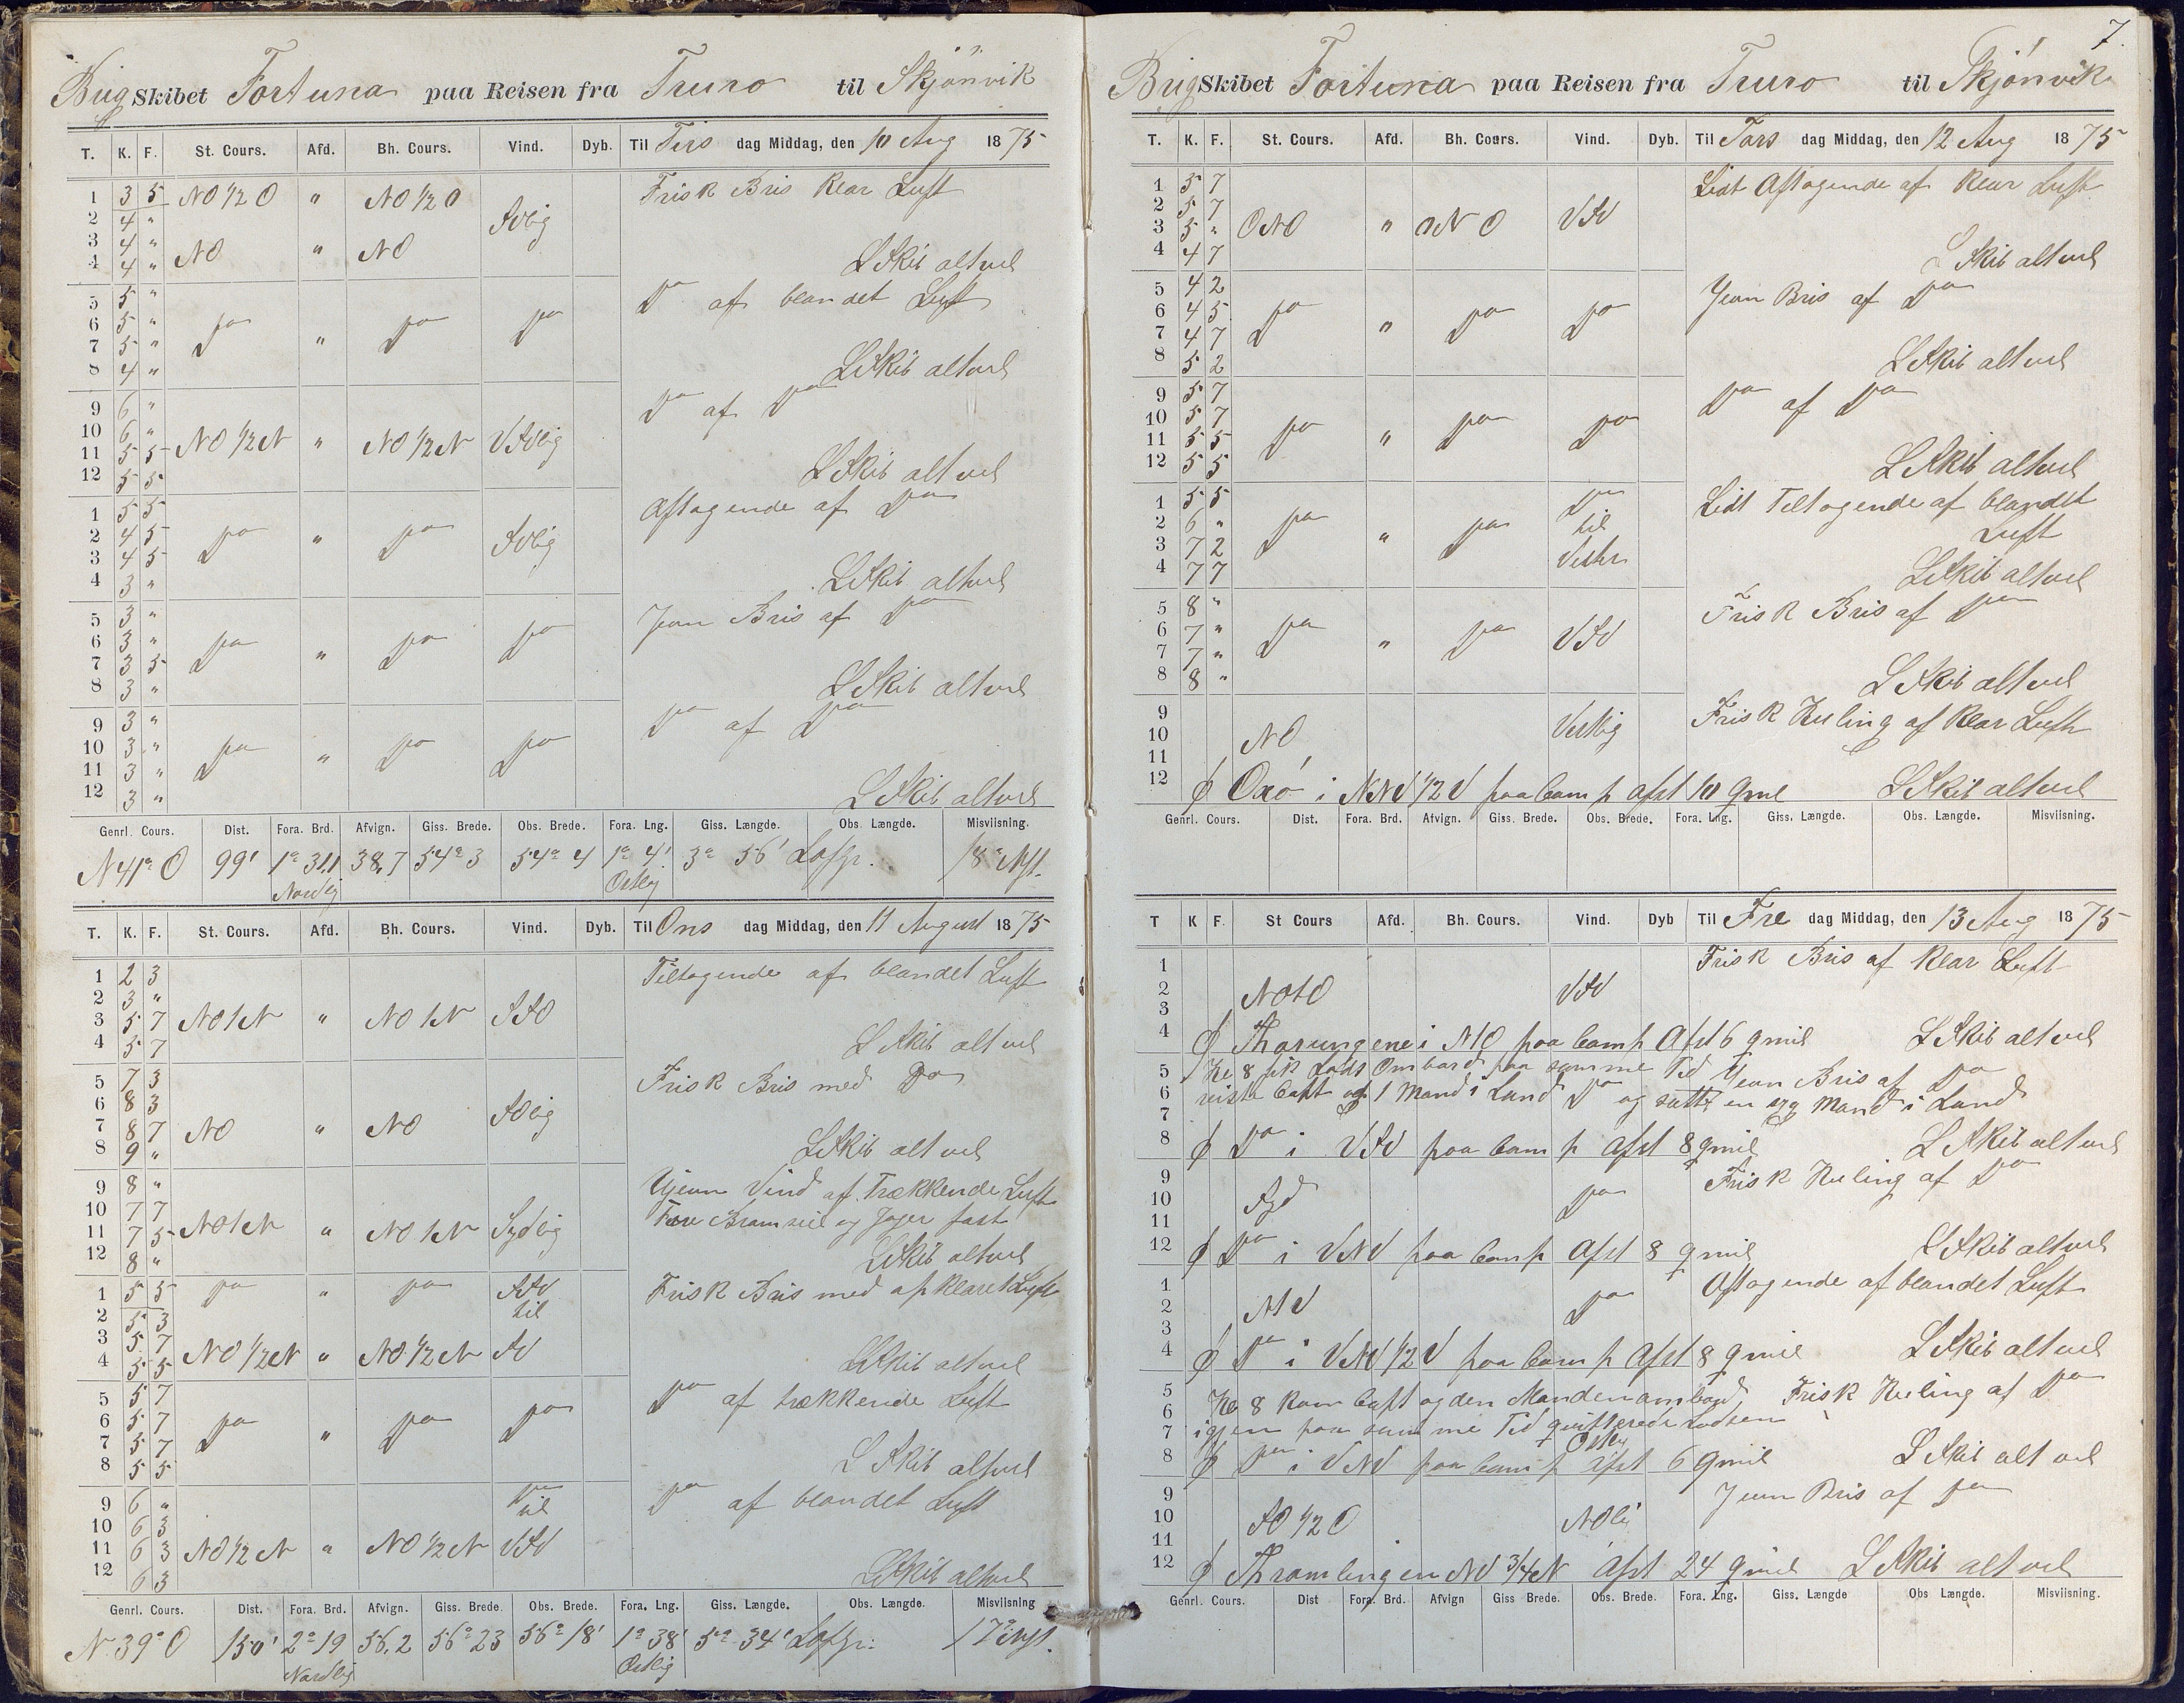 Brig Skibet Fortuna paa Reisen fra Truro til Skjönvik
T. K. F. St. Cours. Afd. Bh. Cours. Vind. Dyb. Til Tirs dag Middag, den 10 Aug 1875
1 3 5 NO 1/2 O " NO 1/2 O Frisk Bris klar Luft
2 4 " SOlig
3 4 "
4 4 " NO " NO L Skib alt vel
5 5 " Do af blandet Luft
6 5 " Do " Do Do
7 5 "
8 4 " L Skib alt vel
9 6 " Do af Do
10 6 "
11 5 5 NO 1/2 N " NO 1/2 N VSVlig
12 5 5 L Skib alt vel
1 5 5 Aftagende af Do
2 4 5 Do " Do SVlig
3 4 5
4 3 " L Skib alt vel
5 3 " Jevn Bris af Do
6 3 " Do " Do Do
7 3 5
8 3 " L Skib alt vel
9 3 " Do af Do
10 3 " Do " Do Do
11 3 "
12 3 " L Skib alt vel
Genrl. Cours. Dist. Fora. Brd. Afvign. Giss. Brede. Obs. Brede. Fora. Lng. Giss. Længde. Obs. Længde. Misviisning.
N 41° O 99' 1° 31,1 38,7 54° 3 54° 4 1° 4' 3° 56'
Nordlig Ostlig
T. K. F. St. Cours. Afd. Bh. Cours. Vind. Dyb. Til Ons dag Middag, den 11 August 1875
1 2 3 Tiltagende af blandet Luft
2 3 "
3 5 7 NO t N " NO t N SSO
4 5 7 L Skib alt vel
5 7 3 Frisk Bris med Do
6 8 3
7 8 7 NO " NO SOlig
8 9 " L Skib alt vel
9 8 " Ujevn Vind af Trækkende Luft
10 7 7 Fore Bramseil og Jager fast
11 7 5 NO t N " NO t N Sydlig
12 8 " L Skib alt vel
1 5 5 Do " Do SSV Frisk Bris med afklaret Luft
2 5 3 til
3 5 7
4 5 5 NO 1/2 N " NO 1/2 N SV L Skib alt vel
5 5 7 Do af trækkende Luft
6 5 7 Do " Do Do
7 5 7
8 5 5 L Skib alt vel
9 6 " Do Do af blandet Luft
10 6 3 til
11 6 3 NO 1/2 N " NO 1/2 N VSV
12 6 3 L Skib alt vel
Genrl. Cours. Dist. Fora. Brd. Afvign. Giss. Brede. Obs. Brede. Fora. Lng. Giss. Længde. Obs. Længde. Misviisning
N 39° O 150' 2° 19 56,2 56° 23 56° 18' 1° 38' 5° 34'
Nordlig Ostlig
7.
Brig Skibet Fortuna paa Reisen fra Truro til Skjönvik
T. K. F. St. Cours. Afd. Bh. Cours. Vind. Dyb. Til Tors dag Middag, den 12 Aug 1875
1 5 7 Lidt Aftagende af klar Luft
2 5 7
3 5 " ONO " ONO VSV
4 4 7 L Skib alt vel
5 4 2 Jevn Bris af Do
6 4 5 Do " Do Do
7 4 7
8 5 2 L Skib alt vel
9 5 7 Do af Do
10 5 7
11 5 5 Do " Do Do
12 5 5 L Skib alt vel
1 5 5 Do Lidt Tiltagende af blandet
2 6 " Do " Do til Luft
3 7 2 Vester
4 7 7 L Skib alt vel
5 8 " Frisk Bris af Do
6 7 " Do " Do VSV
7 7 "
8 8 " L Skib alt vel
9 Vestlig Frisk Kuling af klar Luft
10 NO
11
12 Oxö i NNV 1/2 V paa Comp Afst 10 qmil L Skib alt vel
Genrl. Cours. Dist. Fora. Brd. Afvign. Giss. Brede. Obs. Brede. Fora. Lng. Giss. Længde. Obs. Længde. Misviisning.
T K F. St Cours Afd. Bh. Cours. Vind. Dyb Til Fre dag Middag, den 13 Aug 1875
1 Frisk Bris af klar Luft
2 NOtO VSV
3
4 Thorungene i NtO paa Comp Afst 6 qmil L Skib alt vel
5 Kl 8 fik Lods Ombord paa samme Tid Jevn Bris af Do
6 reiste Capt og 1 Mand i Land Do og satte en syg Mand i Land
7
8 Do i VSV paa Comp Afst 8 qmil L Skib alt vel
9 Frisk Kuling af Do
10 Syd Do
11
12 Do i VNV paa Comp Afst 8 qmil L Skib alt vel
1 Aftagende af blandet Luft
2 NtV Do
3
4 Do i VNV 1/2 V paa Comp Afst 8 qmil L Skib alt vel
5 Kl 8 kom Capt og den Manden ombord Frisk Kuling af Do
6
7 igjen paa samme Tid qvitterede Lodsen
8 Do i VNV paa Comp Afst 6 qmil L Skib alt vel
9 Jevn Bris af Do
10 SO 1/2 O NOli
11
12 NV 3/4 N Afst 24 qmil L Skib alt vel
Genrl. Cours. Dist Fora. Brd. Afvign Giss Brede. Obs. Brede. Fora. Lng. Giss. Længde Obs Længde. Misviisning.